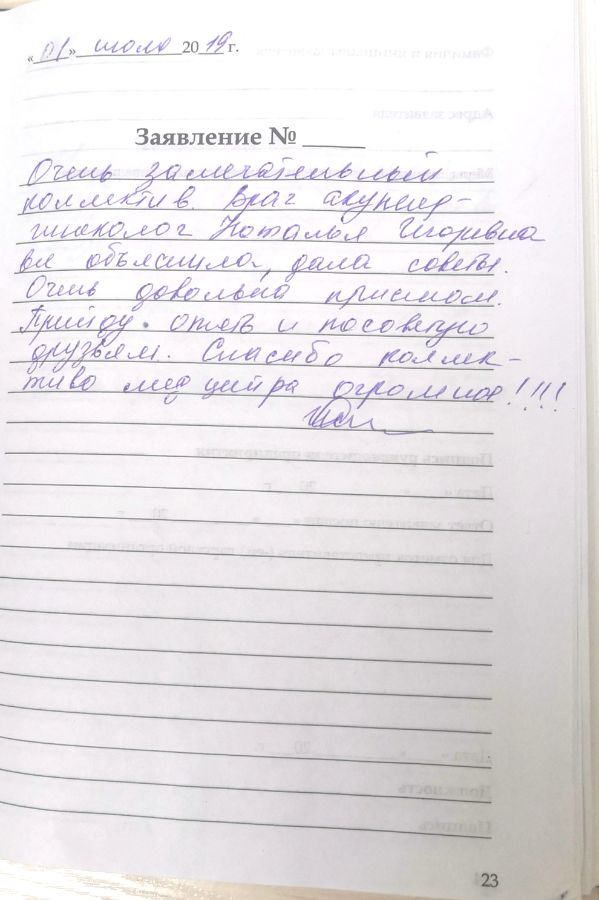 « 01 » июля 2019 г.
Заявление №
Очень замечательный
коллектив. Врач акушер-
гинеколог Наталья Игоревна
все объяснила, дала советы.
Очень довольна приемом.
Прийду опять и посоветую
друзьям. Спасибо коллек-
тиву мед центра огромное!!!!
23